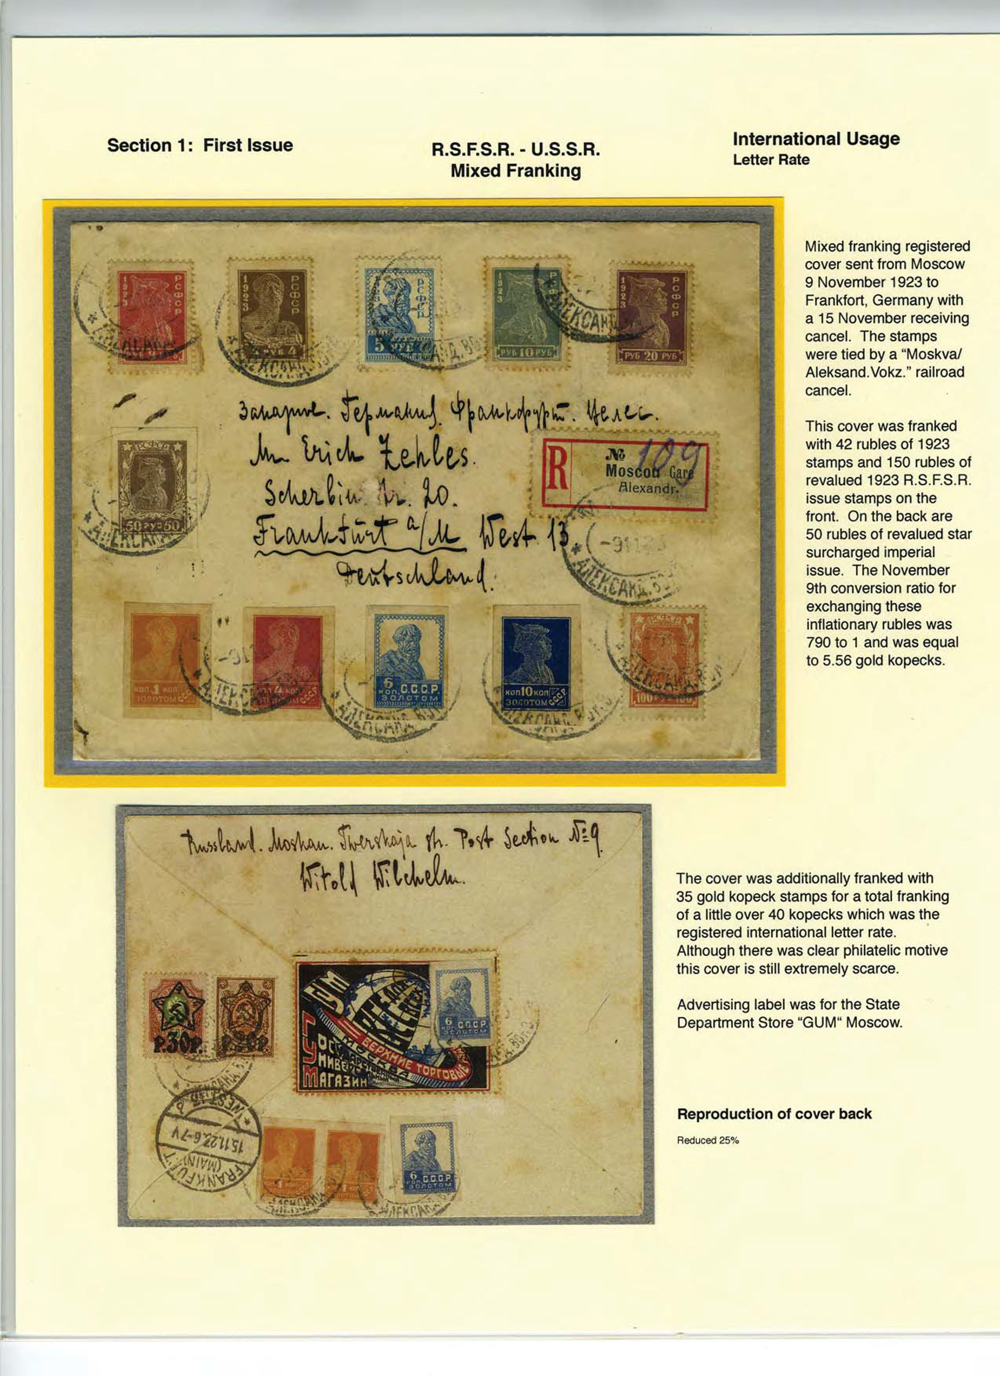 Section 1: First Issue
R.S.F.S.R. - U.S.S.R.
Mixed Franking
International Usage
Letter Rate
Mixed franking registered
cover sent from Moscow
9 November 1923 to
Frankfort, Germany with
a 15 November receiving
cancel. The stamps
were tied by a "Moskva/
Aleksand.Vokz." railroad
cancel.
This cover was franked
with 42 rubles of 1923
stamps and 150 rubles of
revalued 1923 R.S.F.S.R.
issue stamps on the
front. On the back are
50 rubles of revalued star
surcharged imperial
issue. The November
9th conversion ratio for
exchanging these
inflationary rubles was
790 to 1 and was equal
to 5.56 gold kopecks.
1923 РСФСР
1923 РСФСР РУБ 4
РСФСР 5 РУБ
РСФСР РУБ 10 РУБ
1923 РСФСР РУБ 20 РУБ
Заказное. Франкфурт.
Erich Zehles.
20.
Frankfurt a/M West 13
Deutschland.
R
№ 109
Moscou Gare
Alexandr.
50 РУБ 50
КОП 1 КОП
ЗОЛОТОМ
6 КОП. С.С.С.Р.
ЗОЛОТОМ
КОП 10 КОП
ЗОЛОТОМ СССР
100 РУБ 100
Russland. Moskau. Twerskaja Str. Post Section № 9
Witold Wilhelm.
Р.30Р.
Р.20Р.
ГУМ
МОСКВА
ВЕРХНИЕ ТОРГОВЫЕ
ГОСУДАРСТВЕННЫЙ
УНИВЕРСАЛЬНЫЙ
МАГАЗИН
6 С.С.С.Р.
ЗОЛОТОМ
6 С.С.С.Р.
ЗОЛОТОМ
FRANKFURT
(MAIN)
15.11.23.6-7V
WEST 13
The cover was additionally franked with
35 gold kopeck stamps for a total franking
of a little over 40 kopecks which was the
registered international letter rate.
Although there was clear philatelic motive
this cover is still extremely scarce.
Advertising label was for the State
Department Store "GUM" Moscow.
Reproduction of cover back
Reduced 25%